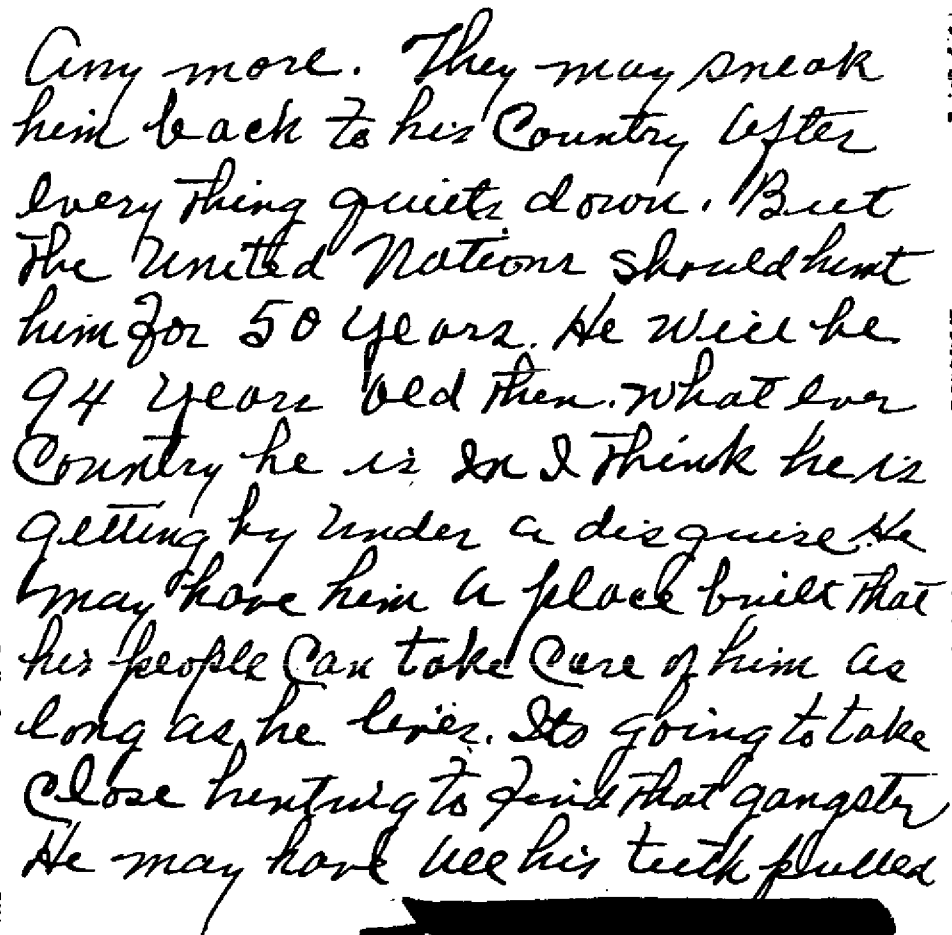 Any more. They may sneak
him back to his Country After
every thing quiets down. But
the United Nations should hunt
him for 50 years. He will be
94 years old then. What ever
Country he is In I think he is
getting by under a disguise. He
may have him a place built that
his people Can take Care of him as
long as he lives. Its going to take
Close hunting to find that gangster
He may have all his teeth pulled